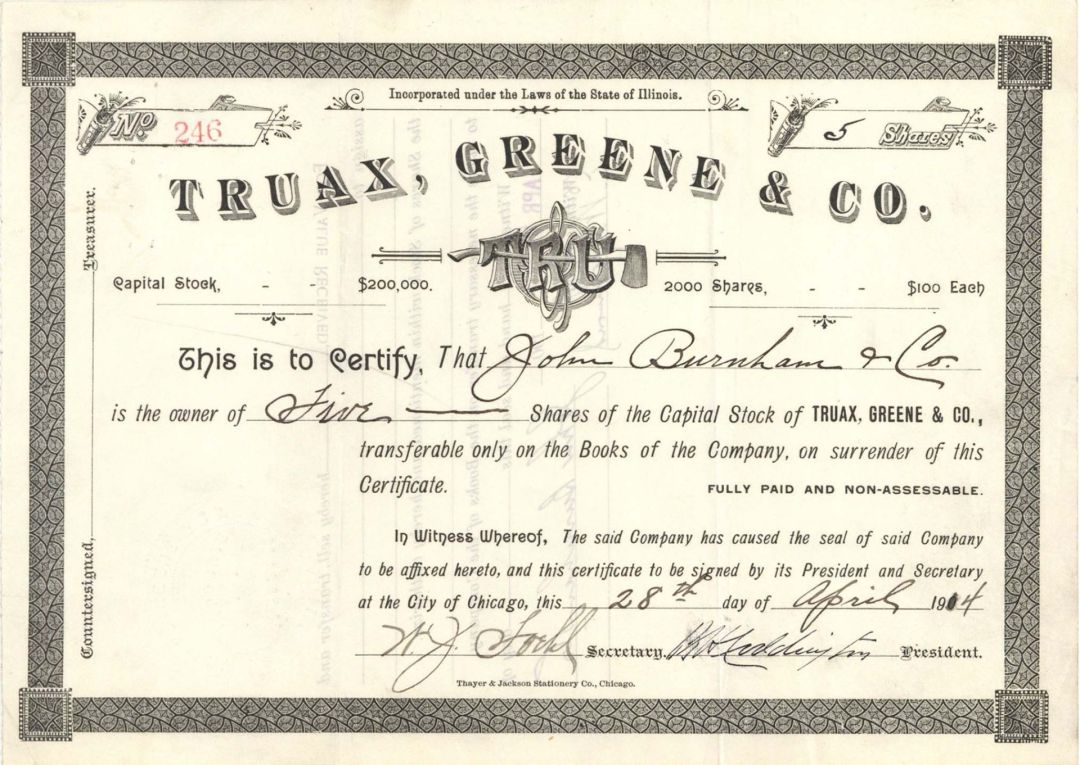 Incorporated under the Laws of the State of Illinois.
No. 246
5 Shares
TRUAX, GREENE & CO.
TRU
Capital Stock, - - $200,000. 2000 Shares, - - $100 Each
This is to Certify, That John Burnham & Co.
is the owner of Five Shares of the Capital Stock of TRUAX, GREENE & CO.,
transferable only on the Books of the Company, on surrender of this
Certificate. FULLY PAID AND NON-ASSESSABLE.
In Witness Whereof, The said Company has caused the seal of said Company
to be affixed hereto, and this certificate to be signed by its President and Secretary
at the City of Chicago, this 28th day of April 1914
W. J. Secretary. President.
Thayer & Jackson Stationery Co., Chicago.
Countersigned, Treasurer.